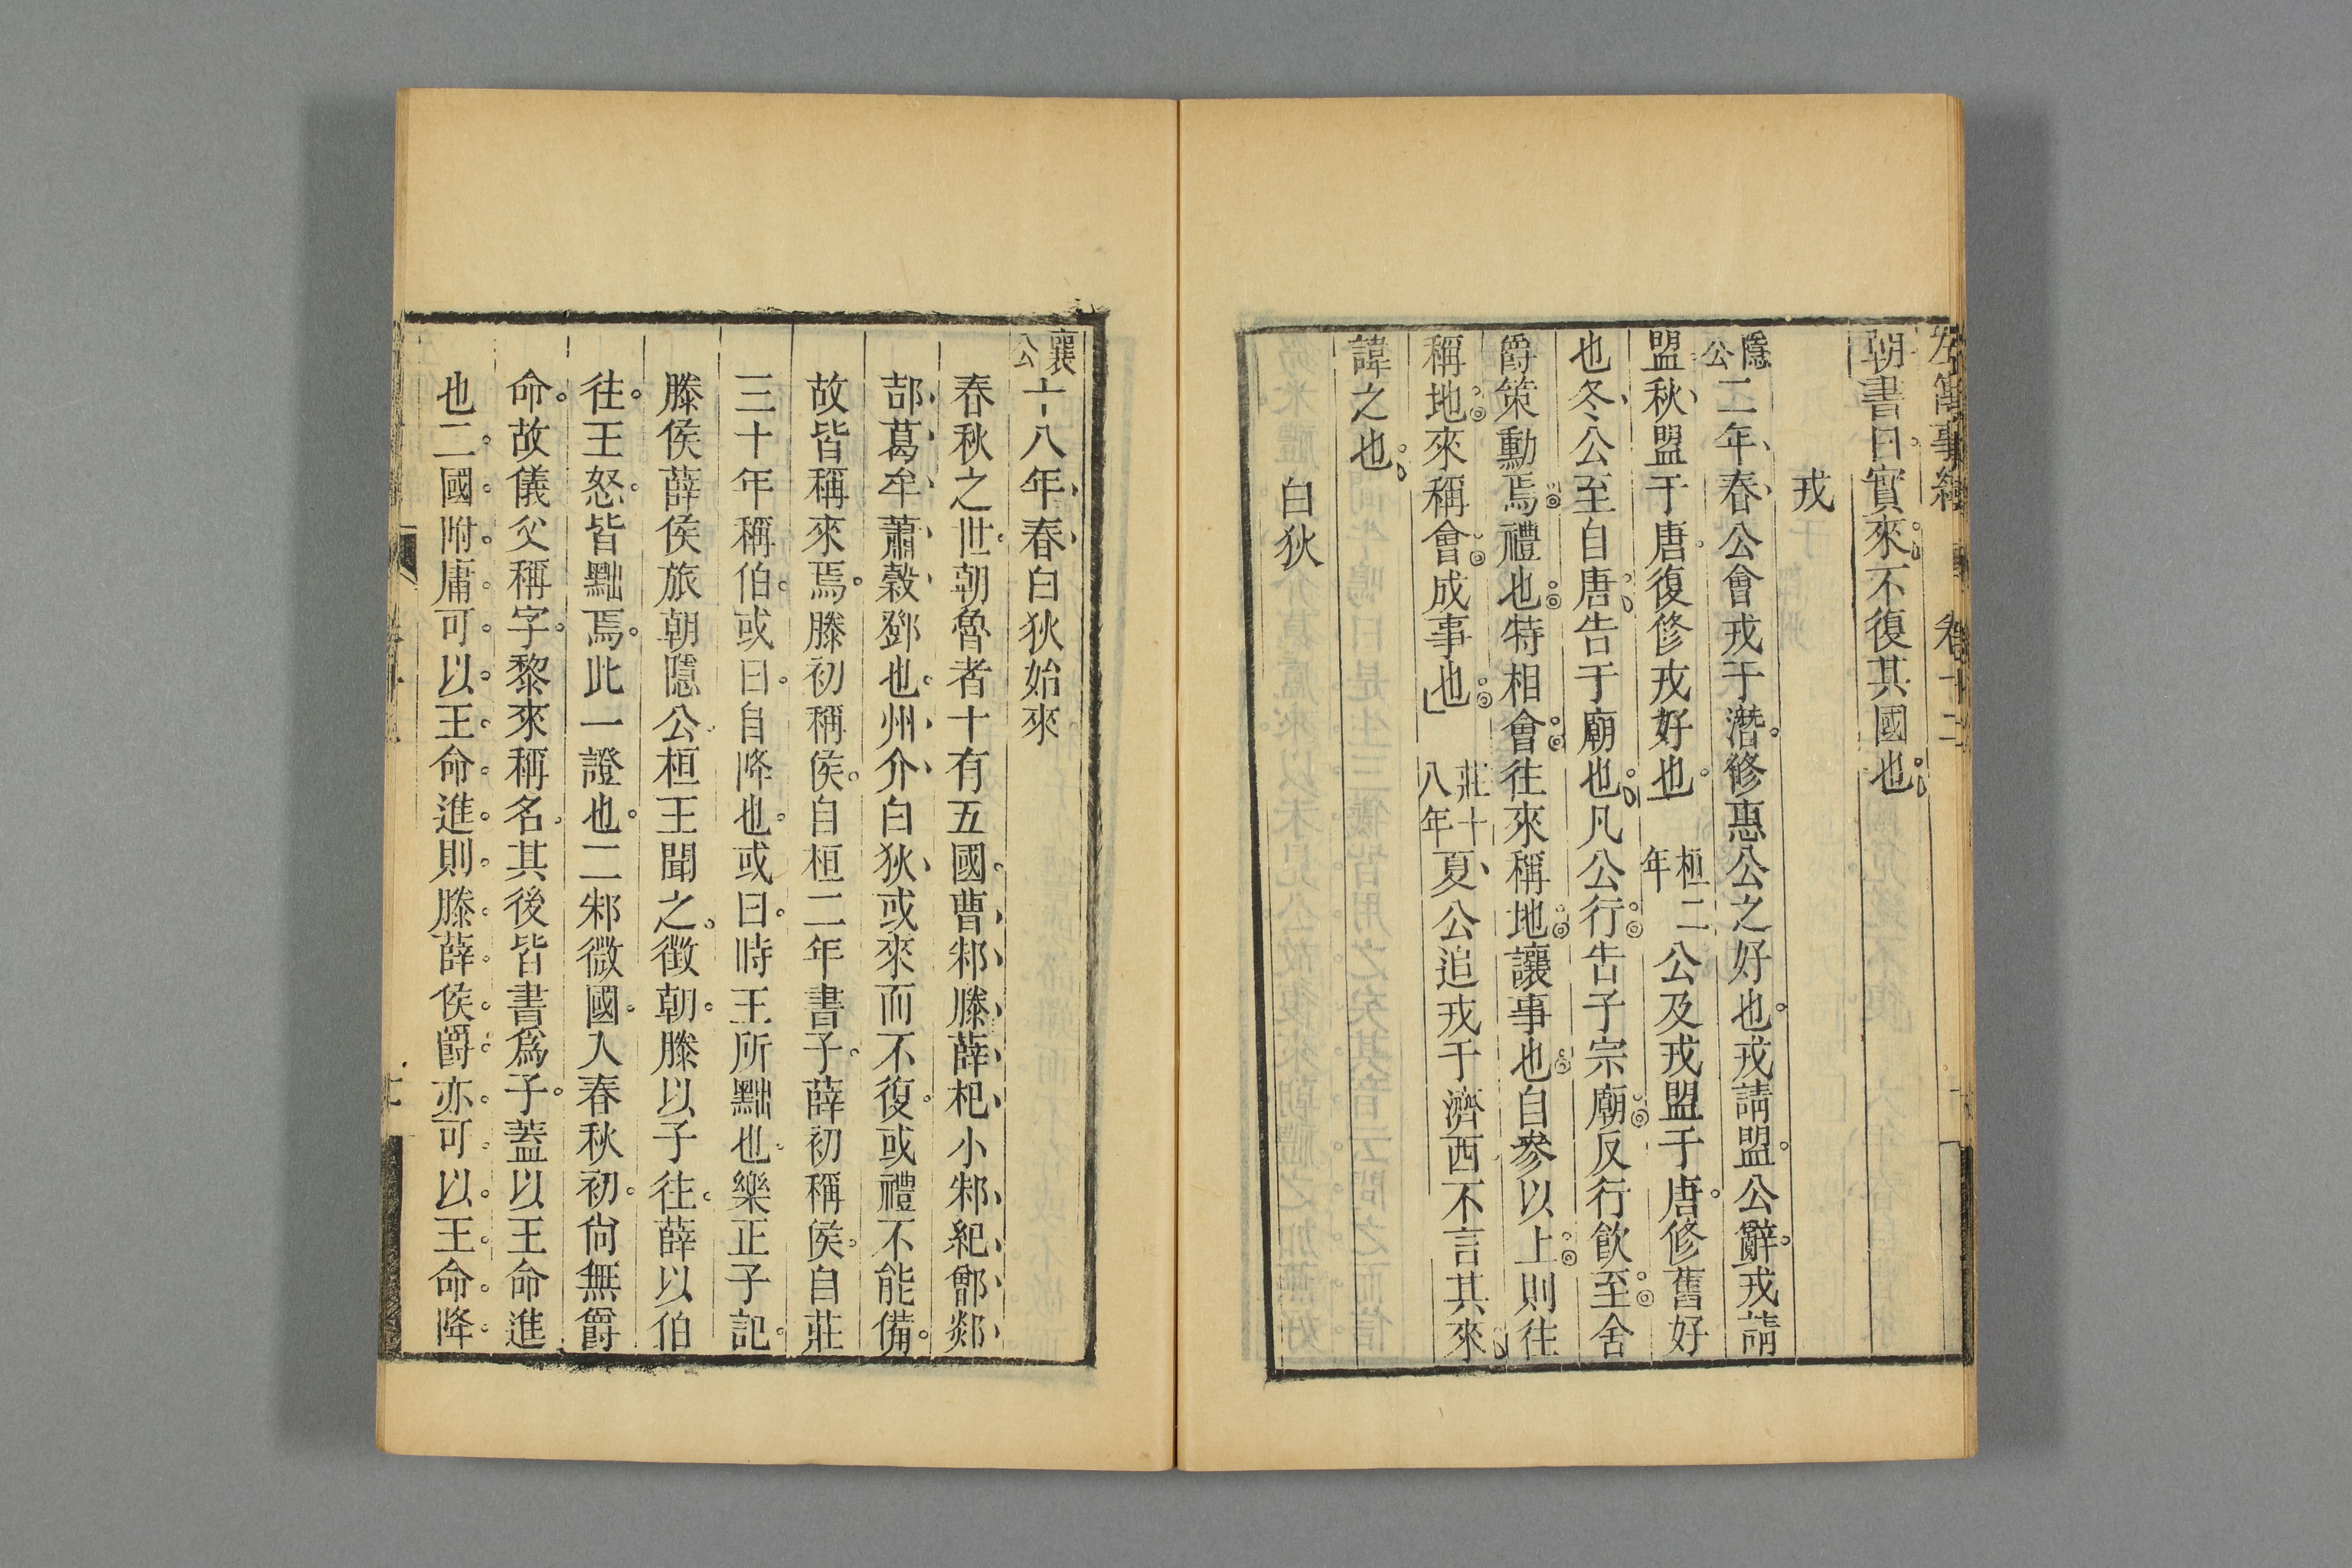 左傳事緯 卷十二
朝書曰實來不復其國也
戎
隱公二年春公會戎于潛修惠公之好也戎請盟公辭戎請
盟秋盟于唐復修戎好也 桓二年公及戎盟于唐修舊好
也冬公至自唐告于廟也凡公行告于宗廟反行飲至舍
爵策勳焉禮也特相會往來稱地讓事也自參以上則往
稱地來稱會成事也 莊十八年夏公追戎于濟西不言其來
諱之也
白狄
襄公十八年春白狄始來
春秋之世朝魯者十有五國曹邾滕薛杞小邾紀鄫郯
郜葛牟蕭穀鄧也州介白狄或來而不復或禮不能備
故皆稱來焉滕初稱侯自桓二年書子薛初稱侯自莊
三十年稱伯或曰自降也或曰時王所黜也樂正子記
滕侯薛侯旅朝隱公桓王聞之徵朝滕以子往薛以伯
往王怒皆黜焉此一證也二邾微國入春秋初尙無爵
命故儀父稱字黎來稱名其後皆書爲子蓋以王命進
也二國附庸可以王命進則滕薛侯爵亦可以王命降